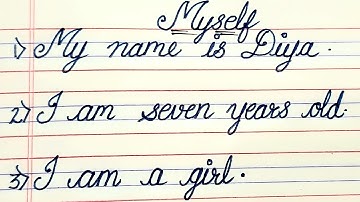 Myself
1) My name is Diya.
2) I am seven years old.
3) I am a girl.